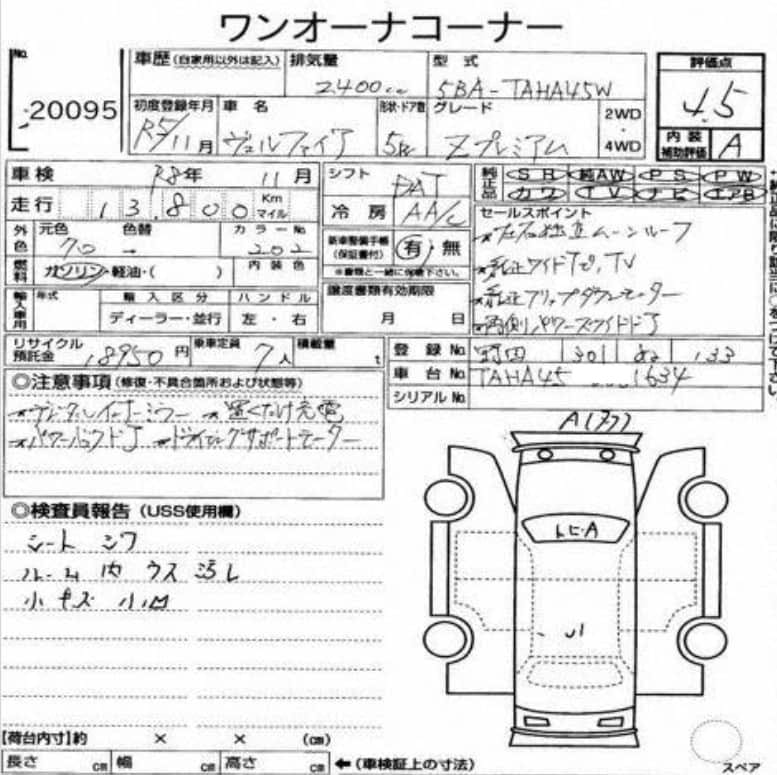 ワンオーナーコーナー
No. 20095
車歴(自家用以外は記入) 排気量 2400cc 型式 5BA-TAHA45W
評価点 4.5
初度登録年月 R5/11月 車名 ヴェルファイア 形状・ドア数 5D グレード Zプレミアム 2WD・4WD
内装補助評価 A
車検 R8年 11月 シフト DAT
純正品 SR 純AW PS PW
カワ TV ナビ エアB
走行 13,800 Km マイル 冷房 AA/C
外色 元色 クロ 色替 カラーNo. 202
新車整備手帳(保証書付) 有・無
※書類と一緒に保管下さい。
燃料 ガソリン・軽油・( ) 内装色
セールスポイント
*左右独立ムーンルーフ
*純正ワイドナビ,TV
*純正フリップダウンモニター
*両側パワースライドドア
輸入車用 年式 輸入区分 ハンドル
ディーラー・並行 左・右
譲渡書類有効期限
月 日
リサイクル預託金 18950円 乗車定員 7人 積載量 t
登録No. 野田 301
133
車台No. TAHA45 1634
シリアルNo.
◎注意事項(修復・不具合箇所および状態等)
*デジタルインナーミラー *置くだけ充電
*パワーバックドア *ドライビングサポートモーター
◎検査員報告(USS使用欄)
シート シワ
ルーム内 ウス汚レ
小キズ 小凹
トビ-A
【荷台内寸】約 × × (cm)
長さ cm 幅 cm 高さ cm ←(車検証上の寸法)
スペア